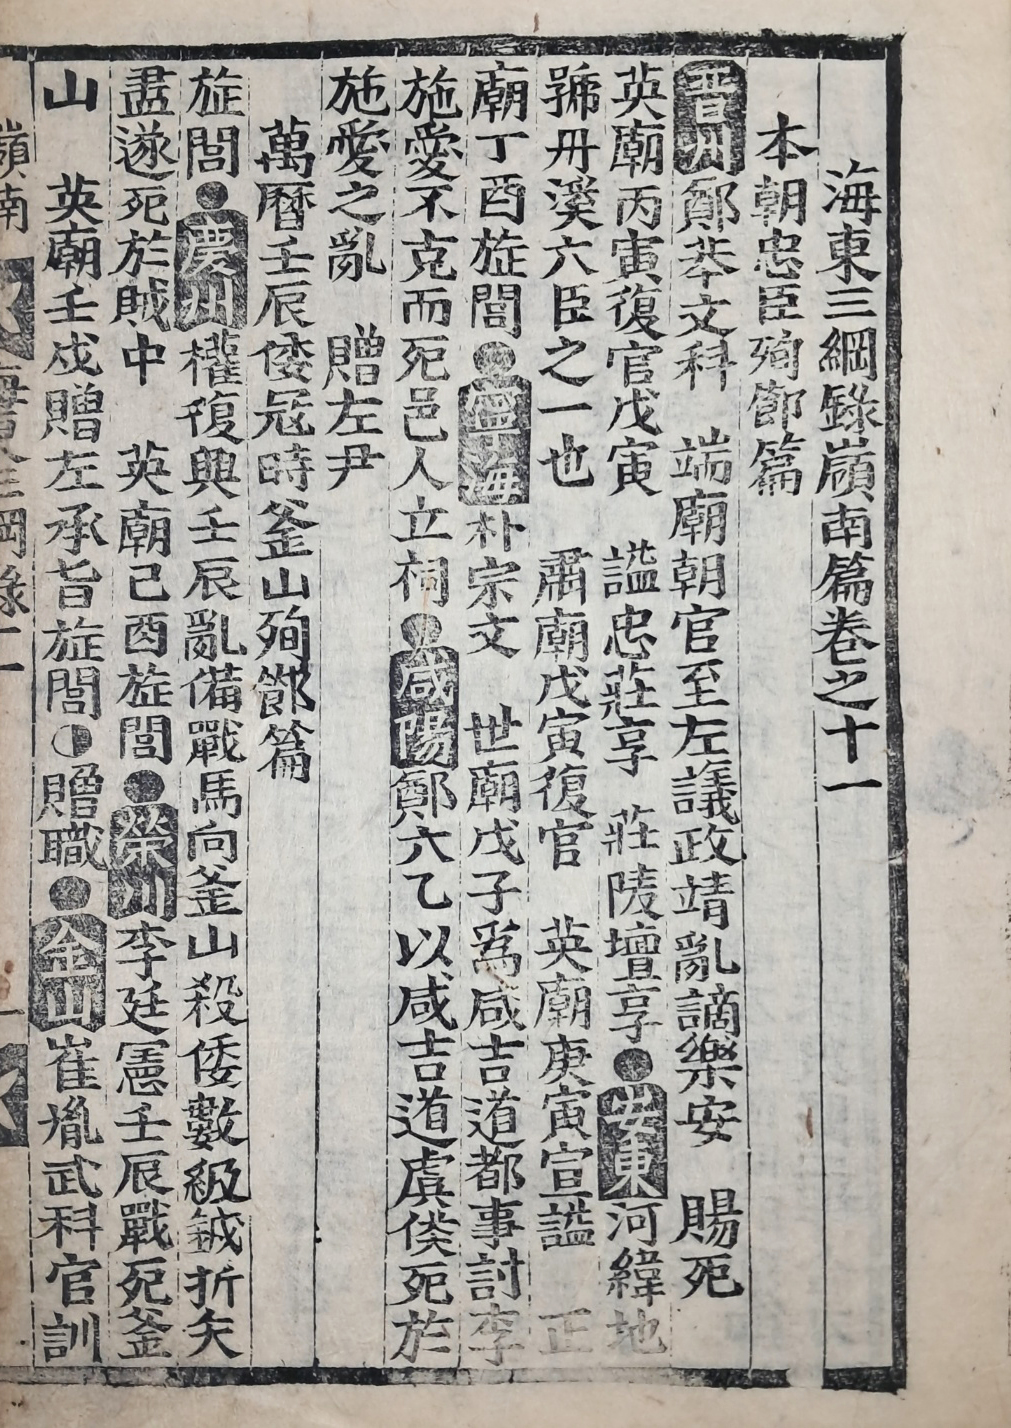 海東三綱錄嶺南篇卷之十一
本朝忠臣殉節篇
晋州鄭苯文科 端廟朝官至左議政靖亂謫樂安 賜死
英廟丙寅復官戊寅 謚忠莊享 莊陵壇享●安東河緯地
號丹溪六臣之一也 肅廟戊寅復官 英廟庚寅宣謚 正
廟丁酉旌閭●寧海朴宗文 世廟戊子爲咸吉道都事討李
施愛不克而死邑人立祠●咸陽鄭六乙以咸吉道虞侯死於
施愛之亂 贈左尹
萬曆壬辰倭冦時釜山殉節篇
旌閭●慶州權復興壬辰亂備戰馬向釜山殺倭數級鉞折矢
盡遂死於賊中 英廟己酉旌閭●榮川李廷憲壬辰戰死釜
山 英廟壬戌贈左承旨旌閭◐贈職●金山崔胤武科官訓
嶺南 海東三綱錄十一